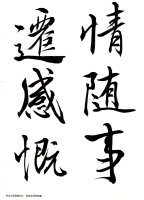 情随事
遷感慨